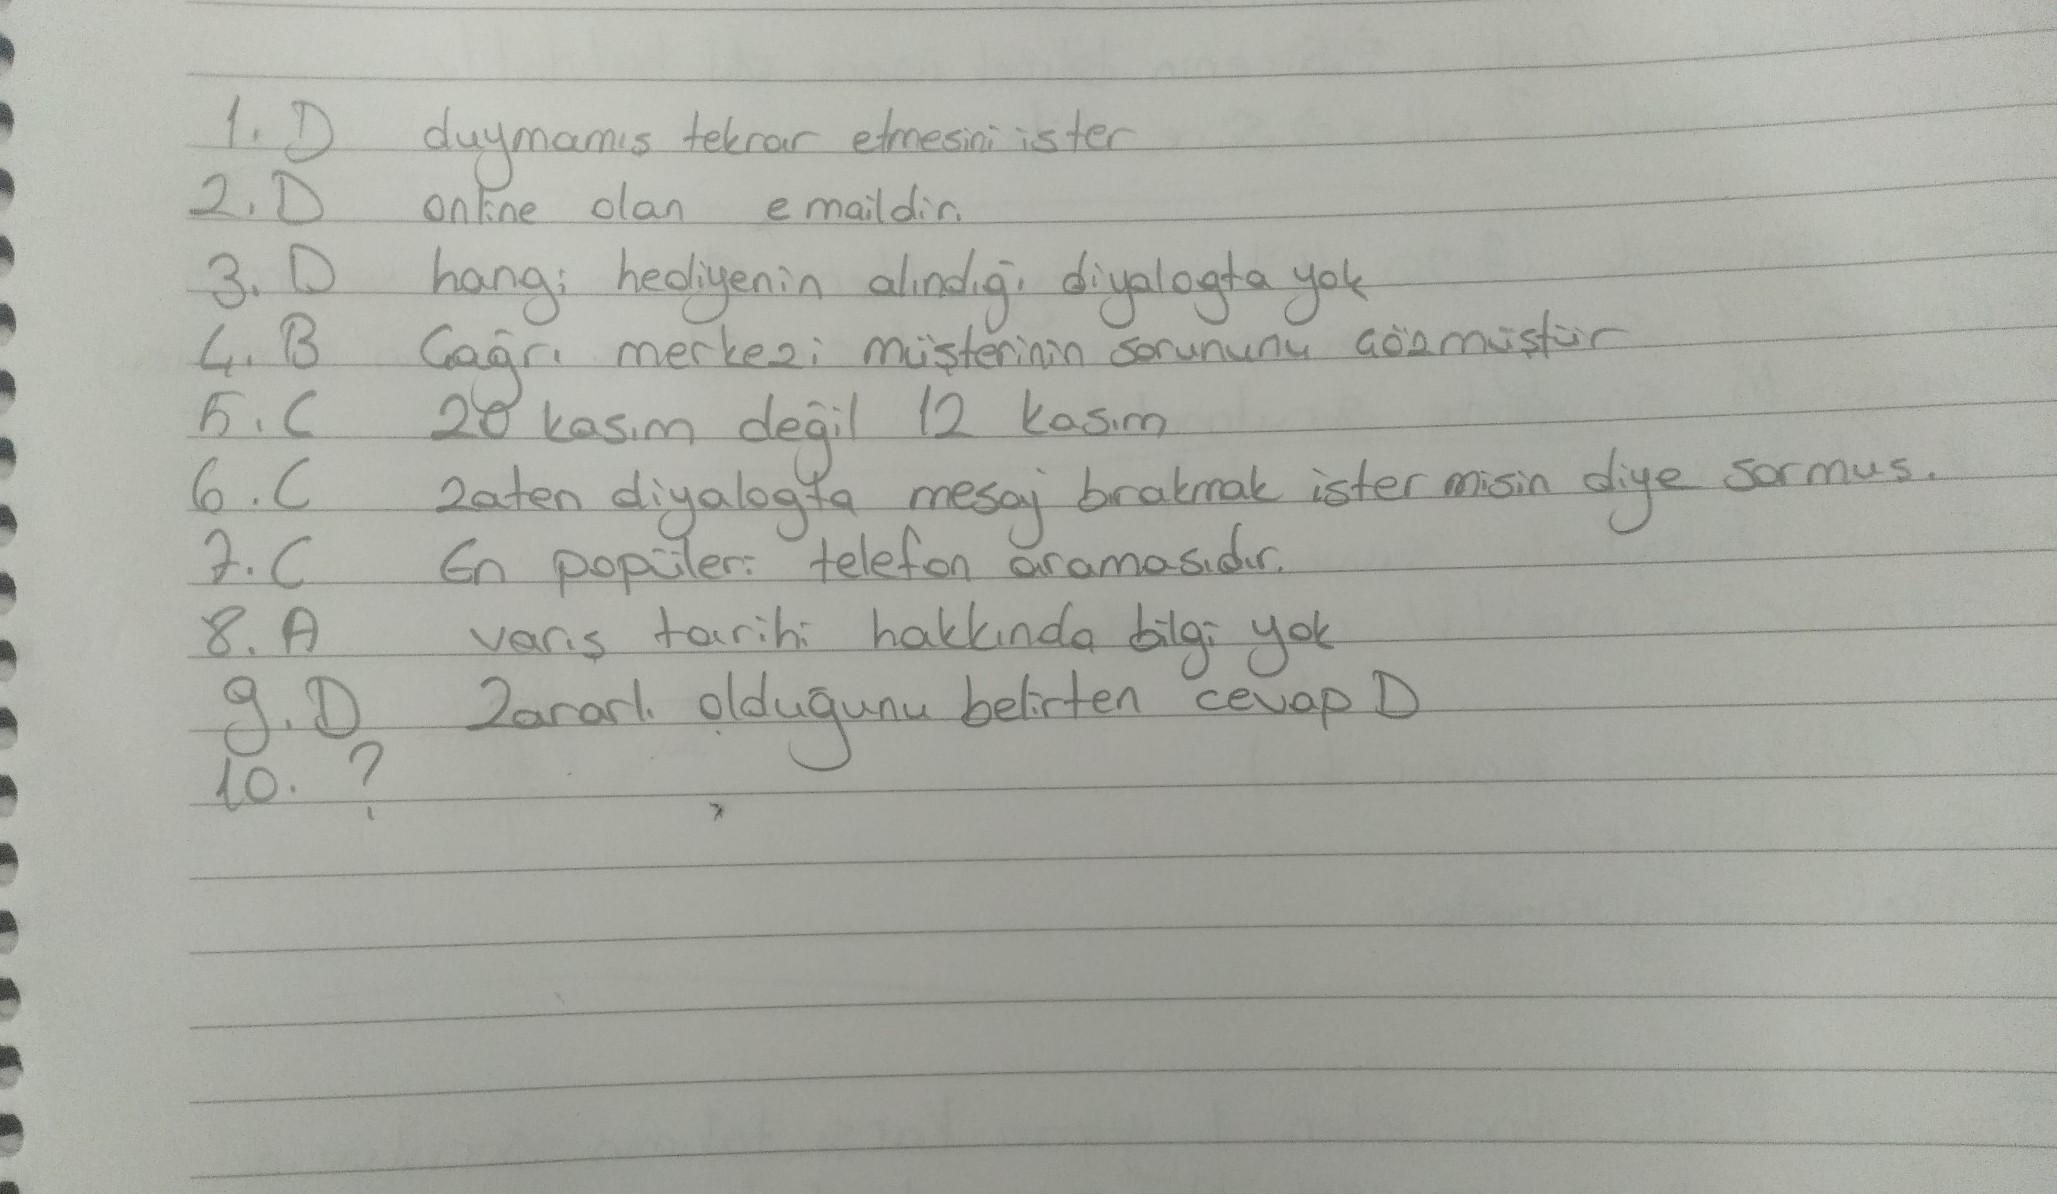 1. D duymamıs tekrar etmesini ister
2. D online olan emaildir.
3. D hangi hediyenin alındığı diyalogta yok
4. B Çağrı merkezi müşterinin sorununu çözmüştür
5. C 20 kasım değil 12 kasım
6. C zaten diyalogta mesaj bırakmak ister misin diye sormus.
7. C En popüleri telefon aramasıdır.
8. A varıs tarihi hakkında bilgi yok
9. D Zararlı olduğunu belirten cevap D
10. ?